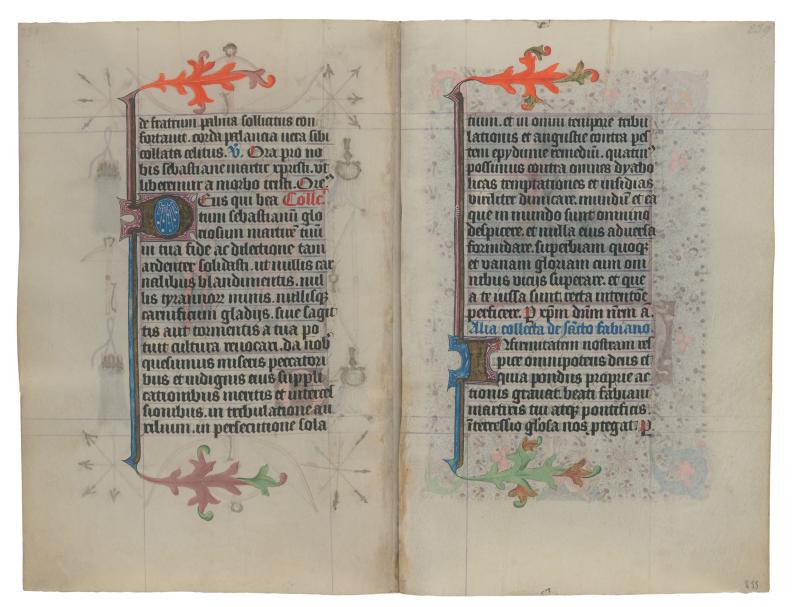 de fratrum palma sollicitus con
fortavit. corda prelancia vera sibi
collata celitus. V. Ora pro no
bis sebastiane martir xpristi. vt
liberemur a morbo tristi. Ore
Deus qui bea Collec
tum sebastianū glo
riosum martirē tuū
in tua fide ac dilectione tam
ardenter solidasti. ut nullis car
nalibus blandimentis. nul
lis tyrannor minis. nullisq
carnificum gladijs. siue sagit
tis aut tormentis a tua po
tuit cultura reuocari. da nob
quesumus miseris peccatori
bus et indignis eius suppli
cationibus meritis et interces
sionibus. in tribulatione au
xilium. in persecutione sola
tium. et in omni tempore tribu
lationis et angustie contra pes
tem epydimie remediū. quatin
possimus contra omnes dyabo
licas temptationes et insidias
viriliter dimicare. mundū et ea
que in mundo sunt omnino
despicere. et nulla eius aduersa
formidare. superbiam quoq
et vanam gloriam cum om
nibus vicijs superare. et que
a te iussa sunt. certa intentōe
perficere. P xpm dnm nrm a.
Alia collecta de sancto fabiano
Infirmitatem nostram res
pice omnipotens deus et
quia pondus proprie ac
tionis grauat. beati fabiani
martiris tui atq pontificis.
īterressio glosa nos ptegat. P
239